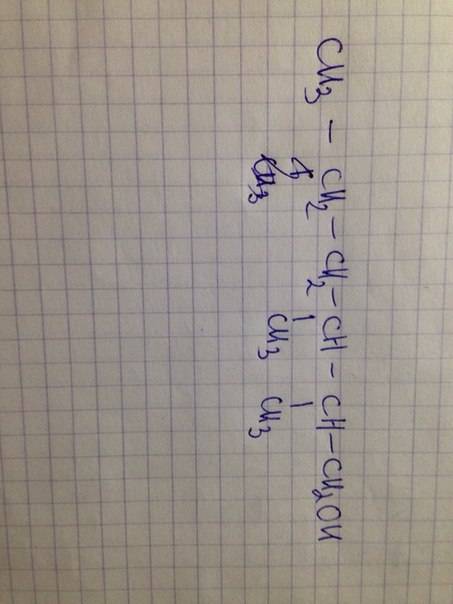 CH3 – CH2 – CH2 – CH – CH – CH2OH
CH3 CH3 CH3